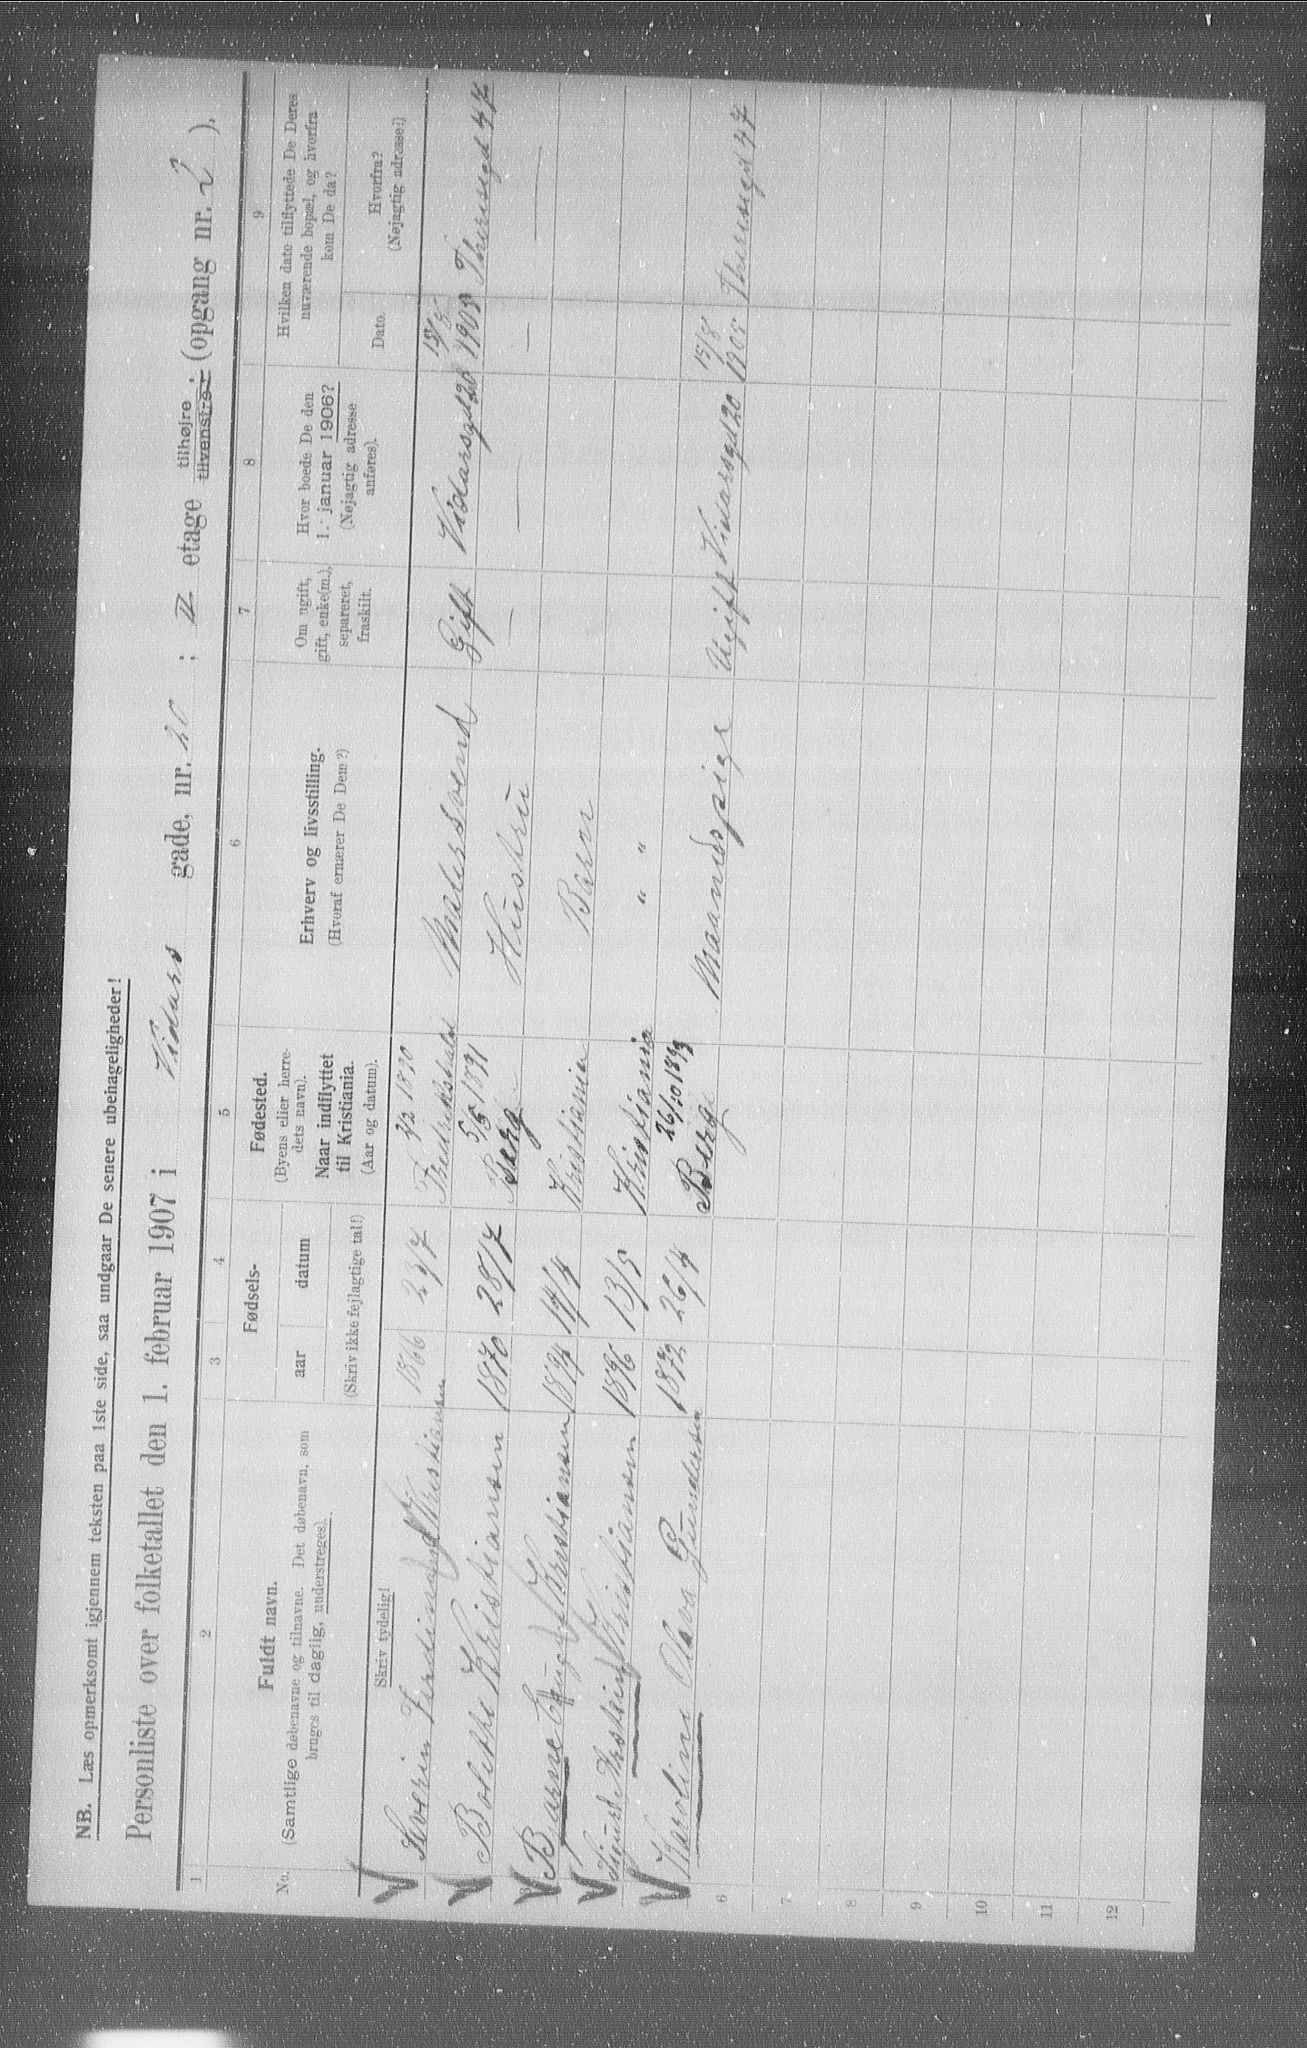 NB. Læs opmerksomt igjennem teksten paa 1ste side, saa undgaar De senere ubehageligheder!
Personliste over folketallet den 1. februar 1907 i Vidars gade, nr. 20 ; II etage tilhøjre tilvenstre: (opgang nr. 2 ).
1 2 3 4 5 6 7 8 9
No.
Fuldt navn.
(Samtlige døbenavne og tilnavne. Det døbenavn, som
bruges til daglig, understreges).
Skriv tydelig!
Fødsels-
aar datum
(Skriv ikke fejlagtige tal!)
Fødested.
(Byens eller herre-
dets navn).
Naar indflyttet
til Kristiania.
(Aar og datum).
Erhverv og livsstilling.
(Hvoraf ernærer De Dem?)
Om ugift,
gift, enke(m.),
separeret,
fraskilt.
Hvor boede De den
1. januar 1906?
(Nøjagtig adresse
anføres).
Hvilken date tilflyttede De Deres
nuværende bopæl, og hvorfra
kom De da?
Dato.
Hvorfra?
(Nøjagtig adresse!)
Ferdinand Kristiansen 1866 23/7 Fredrikshald Malersvend Gift Vidarsgd 20 1905 Theresesgd 47
Bolette Kristiansen 1870 28/7 5/6 1891 Berg Hustru — — — —
Bjarne Kristiansen 1894 17/4 Kristiania Barn
Kristiansen 1896 13/5 Kristiania " "
Karoline Olava Gundersen 1872 26/4 26/10 1893 Berg Maanedspige Ugift Vidarsgd 20 15/5 1905 Theresesgd 47
6
7
8
9
10
11
12